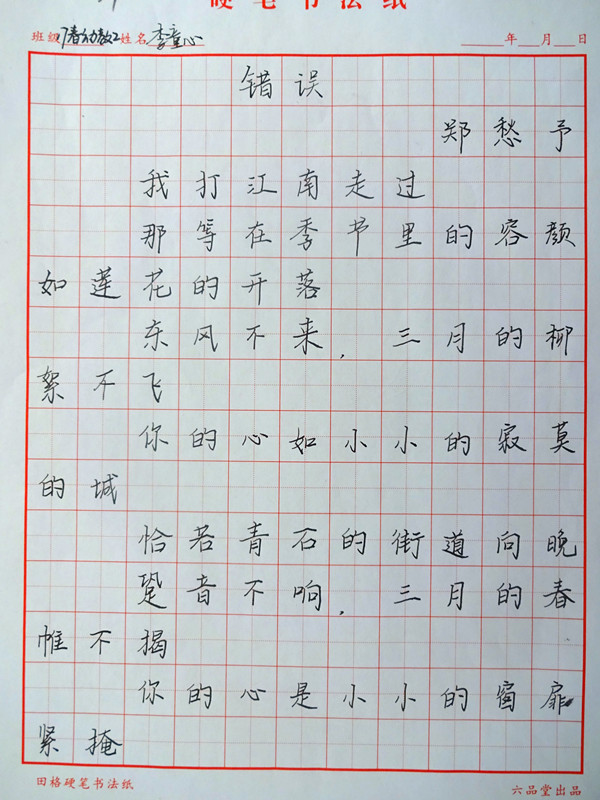 硬笔书法纸
班级 17春幼教2 姓名 李童心 年 月 日
错误
郑愁予
我打江南走过
那等在季节里的容颜
如莲花的开落
东风不来,三月的柳
絮不飞
你的心如小小的寂莫
的城
恰若青石的街道向晚
跫音不响,三月的春
帷不揭
你的心是小小的窗扉
紧掩
田格硬笔书法纸 六品堂出品